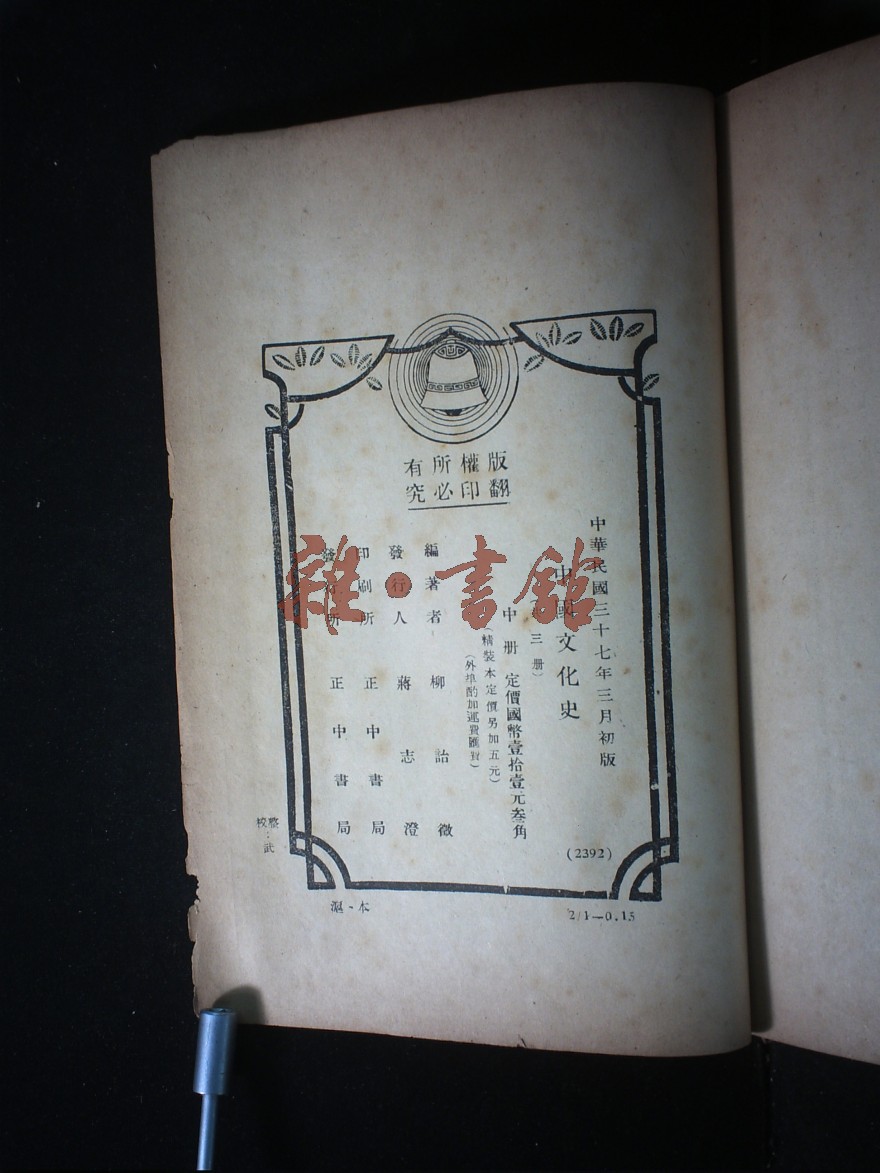 版權所有
翻印必究
中華民國三十七年三月初版
中國文化史
三册)
中册 定價國幣壹拾壹元叁角
(精裝本定價另加五元)
(外埠酌加運費匯費)
編著者 柳詒徵
發行人 蔣志澄
印刷所 正中書局
發行所 正中書局
(2392)
校:武
滬·本
2/1—0.15
雜·書館